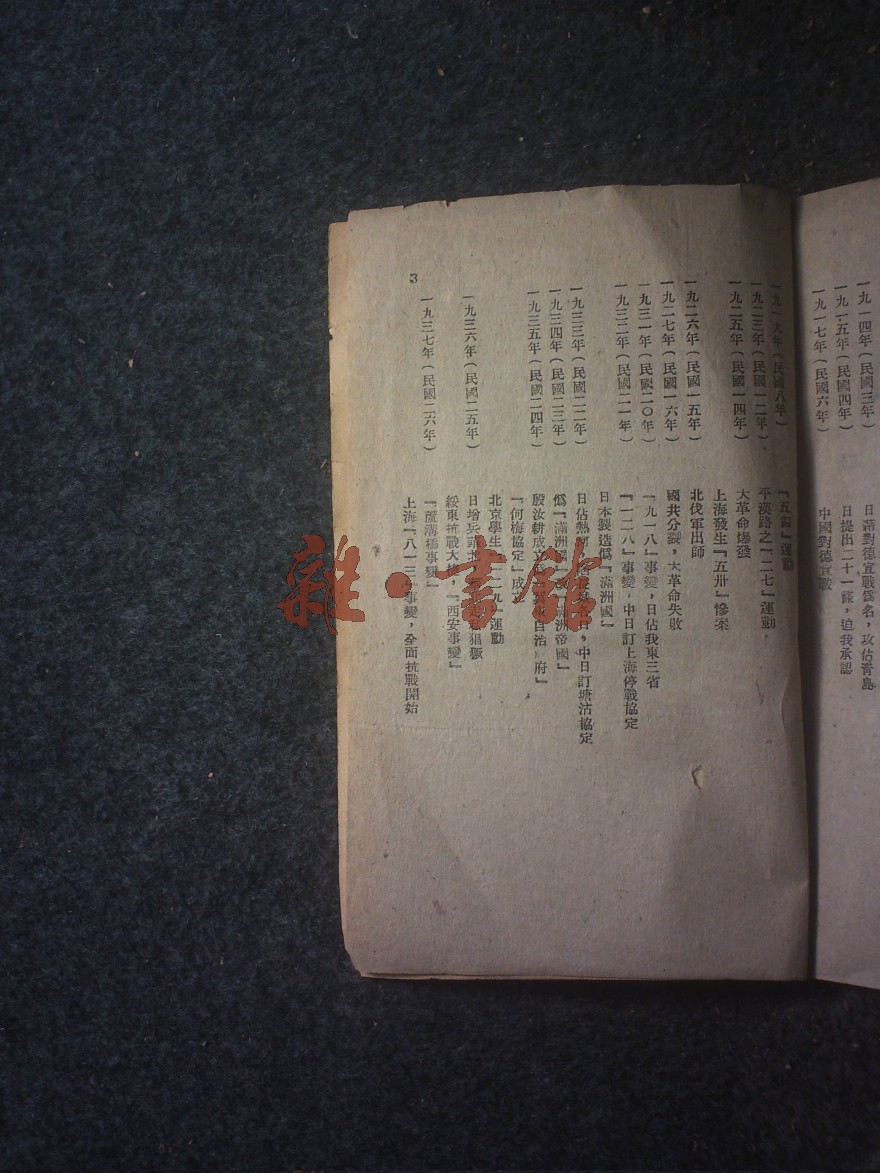 一九一四年(民國三年)
日藉對德宣戰爲名，攻佔青島
一九一五年(民國四年)
日提出二十一條，迫我承認
一九一七年(民國六年)
中國對德宣戰
一九一九年(民國八年)
『五四』運動
一九二三年(民國一二年)
平漢路之『二七』運動
大革命爆發
一九二五年(民國一四年)
上海發生『五卅』慘案
一九二六年(民國一五年)
北伐軍出師
一九二七年(民國一六年)
國共分裂，大革命失敗
一九三一年(民國二〇年)
『九一八』事變，日佔我東三省
一九三二年(民國二一年)
『一二八』事變，中日訂上海停戰協定
日本製造僞『滿洲國』
一九三三年(民國二二年)
日佔熱河，中日訂塘沽協定
一九三四年(民國二三年)
僞『滿洲國』洲帝國』
一九三五年(民國二四年)
殷汝耕成立自治府』
『何梅協定』成立
北京學生『一二九』運動
一九三六年(民國二五年)
日增兵華北猖獗
綏東抗戰大捷，『西安事變』
一九三七年(民國二六年)
『蘆溝橋事變』
上海『八一三』事變，全面抗戰開始
3
雜·書館